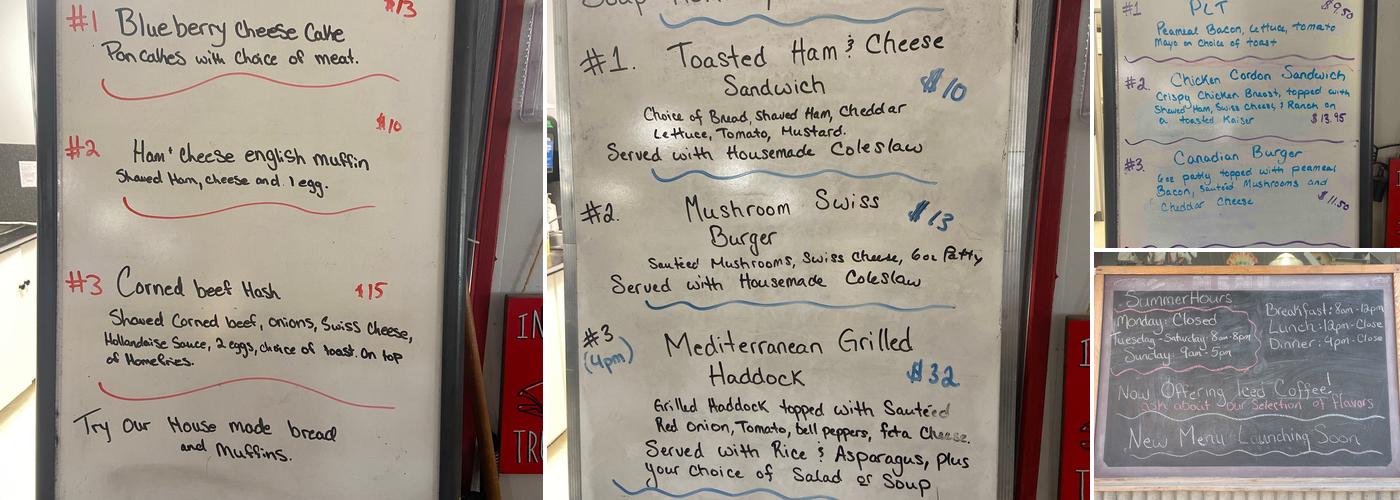 $13
#1 Blueberry Cheese Cake
Pancakes with choice of meat.
$10
#2 Ham & Cheese english muffin
Shaved Ham, cheese and 1 egg.
#3 Corned beef Hash $15
Shaved Corned beef, onions, Swiss Cheese,
Hollandaise Sauce, 2 eggs, choice of toast. On top
of Homefries.
Try our House made bread
and Muffins.
IN
TR
Soup
#1. Toasted Ham & Cheese
Sandwich $10
Choice of Bread, Shaved Ham, Cheddar
Lettuce, Tomato, Mustard.
Served with Housemade Coleslaw
#2. Mushroom Swiss $13
Burger
Sautéed Mushrooms, Swiss Cheese, 6oz Patty
Served with Housemade Coleslaw
#3 Mediterranean Grilled
(4pm) Haddock $32
Grilled Haddock topped with Sautéed
Red Onion, Tomato, bell peppers, feta Cheese.
Served with Rice & Asparagus, plus
your choice of Salad or Soup
#1 PLT $9.50
Peameal Bacon, Lettuce, tomato
Mayo on choice of toast
#2. Chicken Cordon Sandwich
Crispy Chicken Breast, topped with
Shaved Ham, Swiss Cheese, & Ranch on
a toasted Kaiser $13.95
#3. Canadian Burger
6oz patty topped with peameal
Bacon, Sautéed Mushrooms and
Cheddar Cheese $11.50
Summer Hours
Monday: Closed
Tuesday - Saturday: 8am-8pm
Sunday: 9am-5pm
Breakfast: 8am-12pm
Lunch: 12pm-Close
Dinner: 4pm-Close
Now Offering Iced Coffee!
ask about our selection of flavors
New Menu Launching Soon